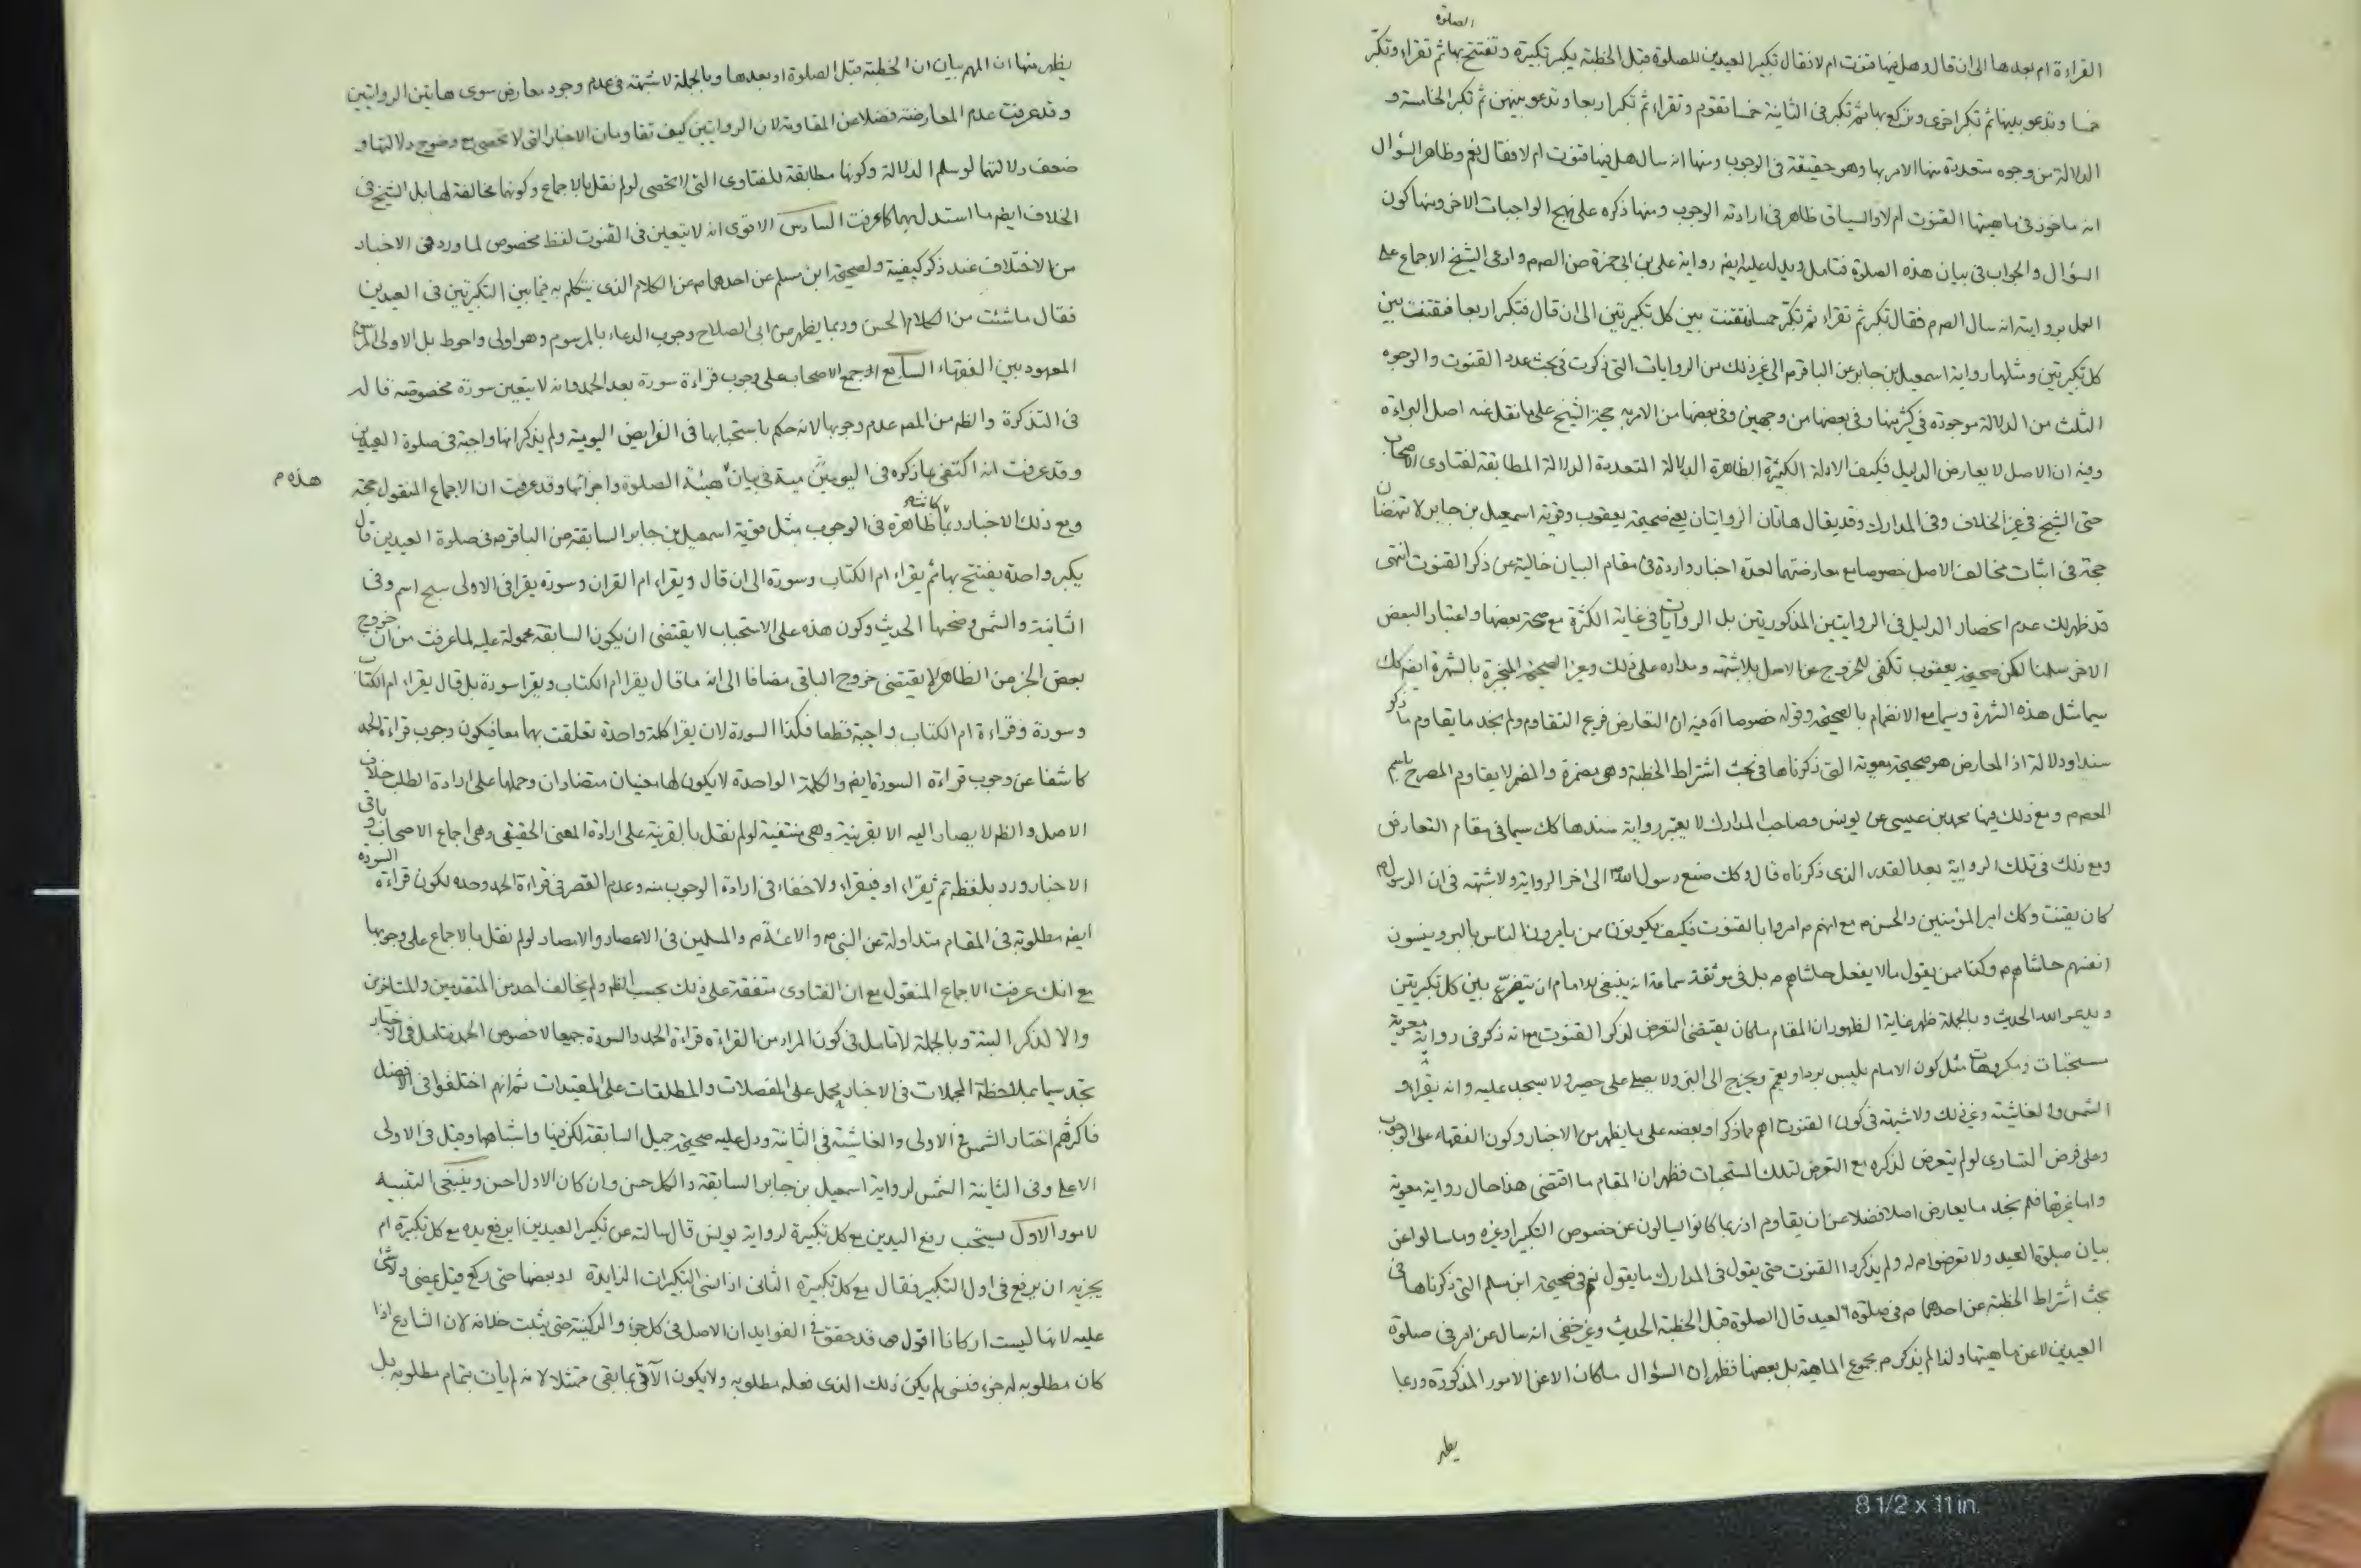 الصلوة
القراءة ام بعدها الى ان قال وهل فيها قنوت ام لا فقال تكبير العيدين للصلوة قبل الخطبة يكبر تكبيرة وتفتتح بها ثم تقراء وتكبر
خمسا وتدعو بينها ثم تكبر اخرى وتركع بها ثم تكبر في الثانية خمسا تقوم وتقراء ثم تكبر اربعا وتدعو بينهن ثم تكبر الخامسة و
الدلالة من وجوه متعددة منها الامر بها وهو حقيقة في الوجوب ومنها انه سال هل فيها قنوت ام لا فقال نعم وظاهر السؤال
انه ماخوذ في ماهيتها القنوت ام لا والسياق ظاهر في ارادته الوجوب ومنها ذكره على نهج الواجبات الاخر ومنها كون
السؤال والجواب في بيان هذه الصلوة فتامل ويدل عليه ايضا رواية على بن ابى حمزة عن الصم وادعى الشيخ الاجماع على
العمل بروايته انه سال الصم فقال تكبر ثم تقراء ثم تكبر خمسا وتقنت بين كل تكبيرتين الى ان قال فتكبر اربعا فتقنت بين
كل تكبيرتين ومثلها رواية اسمعيل بن جابر عن الباقر م الى غير ذلك من الروايات التي ذكرت في بحث عدد القنوت والوجوه
الثلث من الدلالة موجودة في كثير منها وفي بعضها من وجهين وفي بعضها من الامر به حجة الشيخ على ما نقل عنه اصل البراءة
وفيه ان الاصل لا يعارض الدليل فكيف الادلة الكثيرة الظاهرة الدلالة المتعددة الدلالة المطابقة لفتاوى الاصحاب
حتى الشيخ في غير الخلاف وفي المدارك وقد يقال هاتان الروايتان يعنى صحيحة يعقوب وقوية اسمعيل بن جابر لا تنهضان
حجة في اثبات مخالف الاصل خصوصا مع معارضتهما لعدة اخبار واردة في مقام البيان خالية عن ذكر القنوت انتهى
قد ظهر لك عدم انحصار الدليل في الروايتين المذكورتين بل الروايات في غاية الكثرة مع صحة بعضها واعتبار البعض
الاخر سلمنا لكن صحيحة يعقوب تكفى للخروج عن الاصل بلا شبهة ومداره على ذلك وغير الصحيحة المنجبرة بالشهرة ايضا كك
سيما مثل هذه الشهرة وسيما مع الانضمام بالصحيحة وقوله خصوصا آه فيه ان التعارض فرع التقاوم ولم نجد ما يقاوم ما ذكر
سندا ودلالة اذ المعارض هو صحيحة معوية التي ذكرناها في بحث اشتراط الخطبة وهي مضمرة والمضمر لا يقاوم المصرح باسم
المعصوم ومع ذلك فيها محمد بن عيسى عن يونس وصاحب المدارك لا يعتبر رواية سندها كك سيما في مقام التعارض
ومع ذلك في تلك الرواية بعد القدر الذي ذكرناه قال وكك صنع رسول الله الى اخر الرواية ولا شبهة في ان الرسول م
كان يقنت وكك امير المؤمنين والحسن م مع انهم م امروا بالقنوت فكيف يكونون ممن يامرون الناس بالبر وينسون
انفسهم حاشاهم م وكنا ممن يقول ما لا يفعل حاشاهم م بل في موثقة سماعة انه ينبغى للامام ان يتضرع بين كل تكبيرتين
ويدعو الله الحديث وبالجملة ظهر غاية الظهور ان المقام ما كان يقتضى التعرض لذكر القنوت مع انه ذكر في رواية معوية
مستحبات ومكروهات مثل كون الامام يلبس بردا ويعتم ويخرج الى البر ولا يصلى على حصير ولا يسجد عليه وانه يقراء
الشمس والغاشية وغير ذلك ولا شبهة في كون القنوت اهم مما ذكر او بعضه على ما يظهر من الاخبار وكون الفقهاء على الوجوب
وعلى فرض التساوى لو لم يتعرض لذكره مع التعرض لتلك المستحبات فظهر ان المقام ما اقتضى هذا حال رواية معوية
واما غيرها فلم نجد ما يعارض اصلا فضلا عن ان يقاوم اذ ربما كانوا يسالون عن خصوص التكبير او غيره وما سالوا عن
بيان صلوة العيد ولا تعرضوا م له ولم يذكروا القنوت حتى يقول في المدارك ما يقول نعم في صحيحة ابن مسلم التي ذكرناها في
بحث اشتراط الخطبة عن احدهما م في صلوة العيد قال الصلوة قبل الخطبة الحديث وغير خفى انه سال عن امر في صلوة
العيدين لا عن ماهيتها ولذا لم يذكر م مجموع الماهية بل بعضها فظهر ان السؤال ما كان الا عن الامور المذكورة وربما
يظهر
يظهر منها ان المهم بيان ان الخطبة قبل الصلوة او بعدها وبالجملة لا شبهة في عدم وجود معارض سوى هاتين الروايتين
وقد عرفت عدم المعارضة فضلا عن المقاومة لان الروايتين كيف تقاومان الاخبار التي لا تحصى مع وضوح دلالتها و
ضعف دلالتهما لو سلم الدلالة وكونها مطابقة للفتاوى التي لا تحصى لو لم نقل بالاجماع وكونهما مخالفة لها بل الشيخ في
الخلاف ايضا ما استدل بهما كما عرفت السادس الاقوى انه لا يتعين في القنوت لفظ مخصوص لما ورد في الاخبار
من الاختلاف عند ذكر كيفية ولصحيحة ابن مسلم عن احدهما م عن الكلام الذي يتكلم به فيما بين التكبيرتين في العيدين
فقال ما شئت من الكلام الحسن وربما يظهر من ابى الصلاح وجوب الدعاء بالمرسوم وهو اولى واحوط بل الاولى المرسوم
المعهود بين الفقهاء السابع اجمع الاصحاب على وجوب قراءة سورة بعد الحمد وانه لا يتعين سورة مخصوصة قاله
في التذكرة والظ من المصم عدم وجوبها لانه حكم باستحبابها في الفرايض اليومية ولم يذكر انها واجبة في صلوة العيدين
وقد عرفت انه اكتفى بما ذكره في اليومية في بيان هيئة الصلوة واجزائها وقد عرفت ان الاجماع المنقول حجة
هذه م
ومع ذلك الاخبار ظاهرة في الوجوب مثل قوية اسمعيل بن جابر السابقة عن الباقر م في صلوة العيدين قال
يكبر واحدة يفتتح بها ثم يقراء ام الكتاب وسورة الى ان قال ويقراء ام القران وسورة يقرا في الاولى سبح اسم وفي
الثانية والشمس وضحها الحديث وكون هذه على الاستحباب لا يقتضى ان يكون السابقة محمولة عليه لما عرفت من ان خروج
بعض الجزء من الظاهر لا يقتضى خروج الباقى مضافا الى انه ما قال يقرا ام الكتاب ويقرا سورة بل قال يقراء ام الكتاب
وسورة وقراءة ام الكتاب واجبة قطعا فكذا السورة لان يقرا كلمة واحدة تعلقت بهما معا فيكون وجوب قراءة الحمد
كاشفا عن وجوب قراءة السورة ايضا والكلمة الواحدة لا يكون لها معنيان متضادان وحملها على ارادة الطلب خلاف
الاصل والظ لا يصار اليه الا بقرينة وهي منتفية لو لم نقل بالقرينة على ارادة المعنى الحقيقى وهي اجماع الاصحاب وباقى
الاخبار ورد بلفظ ثم يقراء او فيقراء ولا خفاء في ارادة الوجوب منه وعدم القصر في قراءة الحمد وحده لكون قراءة السورة
ايضا مطلوبة في المقام متداولة عن النبى م والائمة م والمسلمين في الاعصار والامصار لو لم نقل بالاجماع على وجوبها
مع انك عرفت الاجماع المنقول مع ان الفتاوى متفقة على ذلك بحسب الظ ولم يخالف احد من المتقدمين والمتاخرين
والا لذكر البتة وبالجملة لا تامل في كون المراد من القراءة قراءة الحمد والسورة جميعا لا خصوص الحمد فتامل في الاخبار
تجد سيما بملاحظة المجملات في الاخبار يحمل على المفصلات والمطلقات على المقيدات ثم انهم اختلفوا في الافضل
فاكثرهم اختار الشمس في الاولى والغاشية في الثانية ودل عليه صحيحة جميل السابقة لكن فيها واشباهها وقيل في الاولى
الاعلى وفي الثانية الشمس لرواية اسمعيل بن جابر السابقة والكل حسن وان كان الاول احسن وينبغى التنبيه
لامور الاول يستحب رفع اليدين مع كل تكبيرة لرواية يونس قال سالته عن تكبير العيدين ايرفع يده مع كل تكبيرة ام
يجزيه ان يرفع في اول التكبير فقال مع كل تكبيرة الثانى اذا نسى التكبيرات الزايدة او بعضها حتى ركع قيل يمضى ولا شئ
عليه لانها ليست اركانا اقول قد حقق في الفوايد ان الاصل في كل جزء الركنية حتى يثبت خلافه لان الشارع اذا
كان مطلوبه له جزء فنسى لم يكن ذلك الذي فعله مطلوبه ولا يكون الآتى بما بقى ممتثلا لانه لم يات بتمام مطلوبه بل
8 1/2 x 11 in.